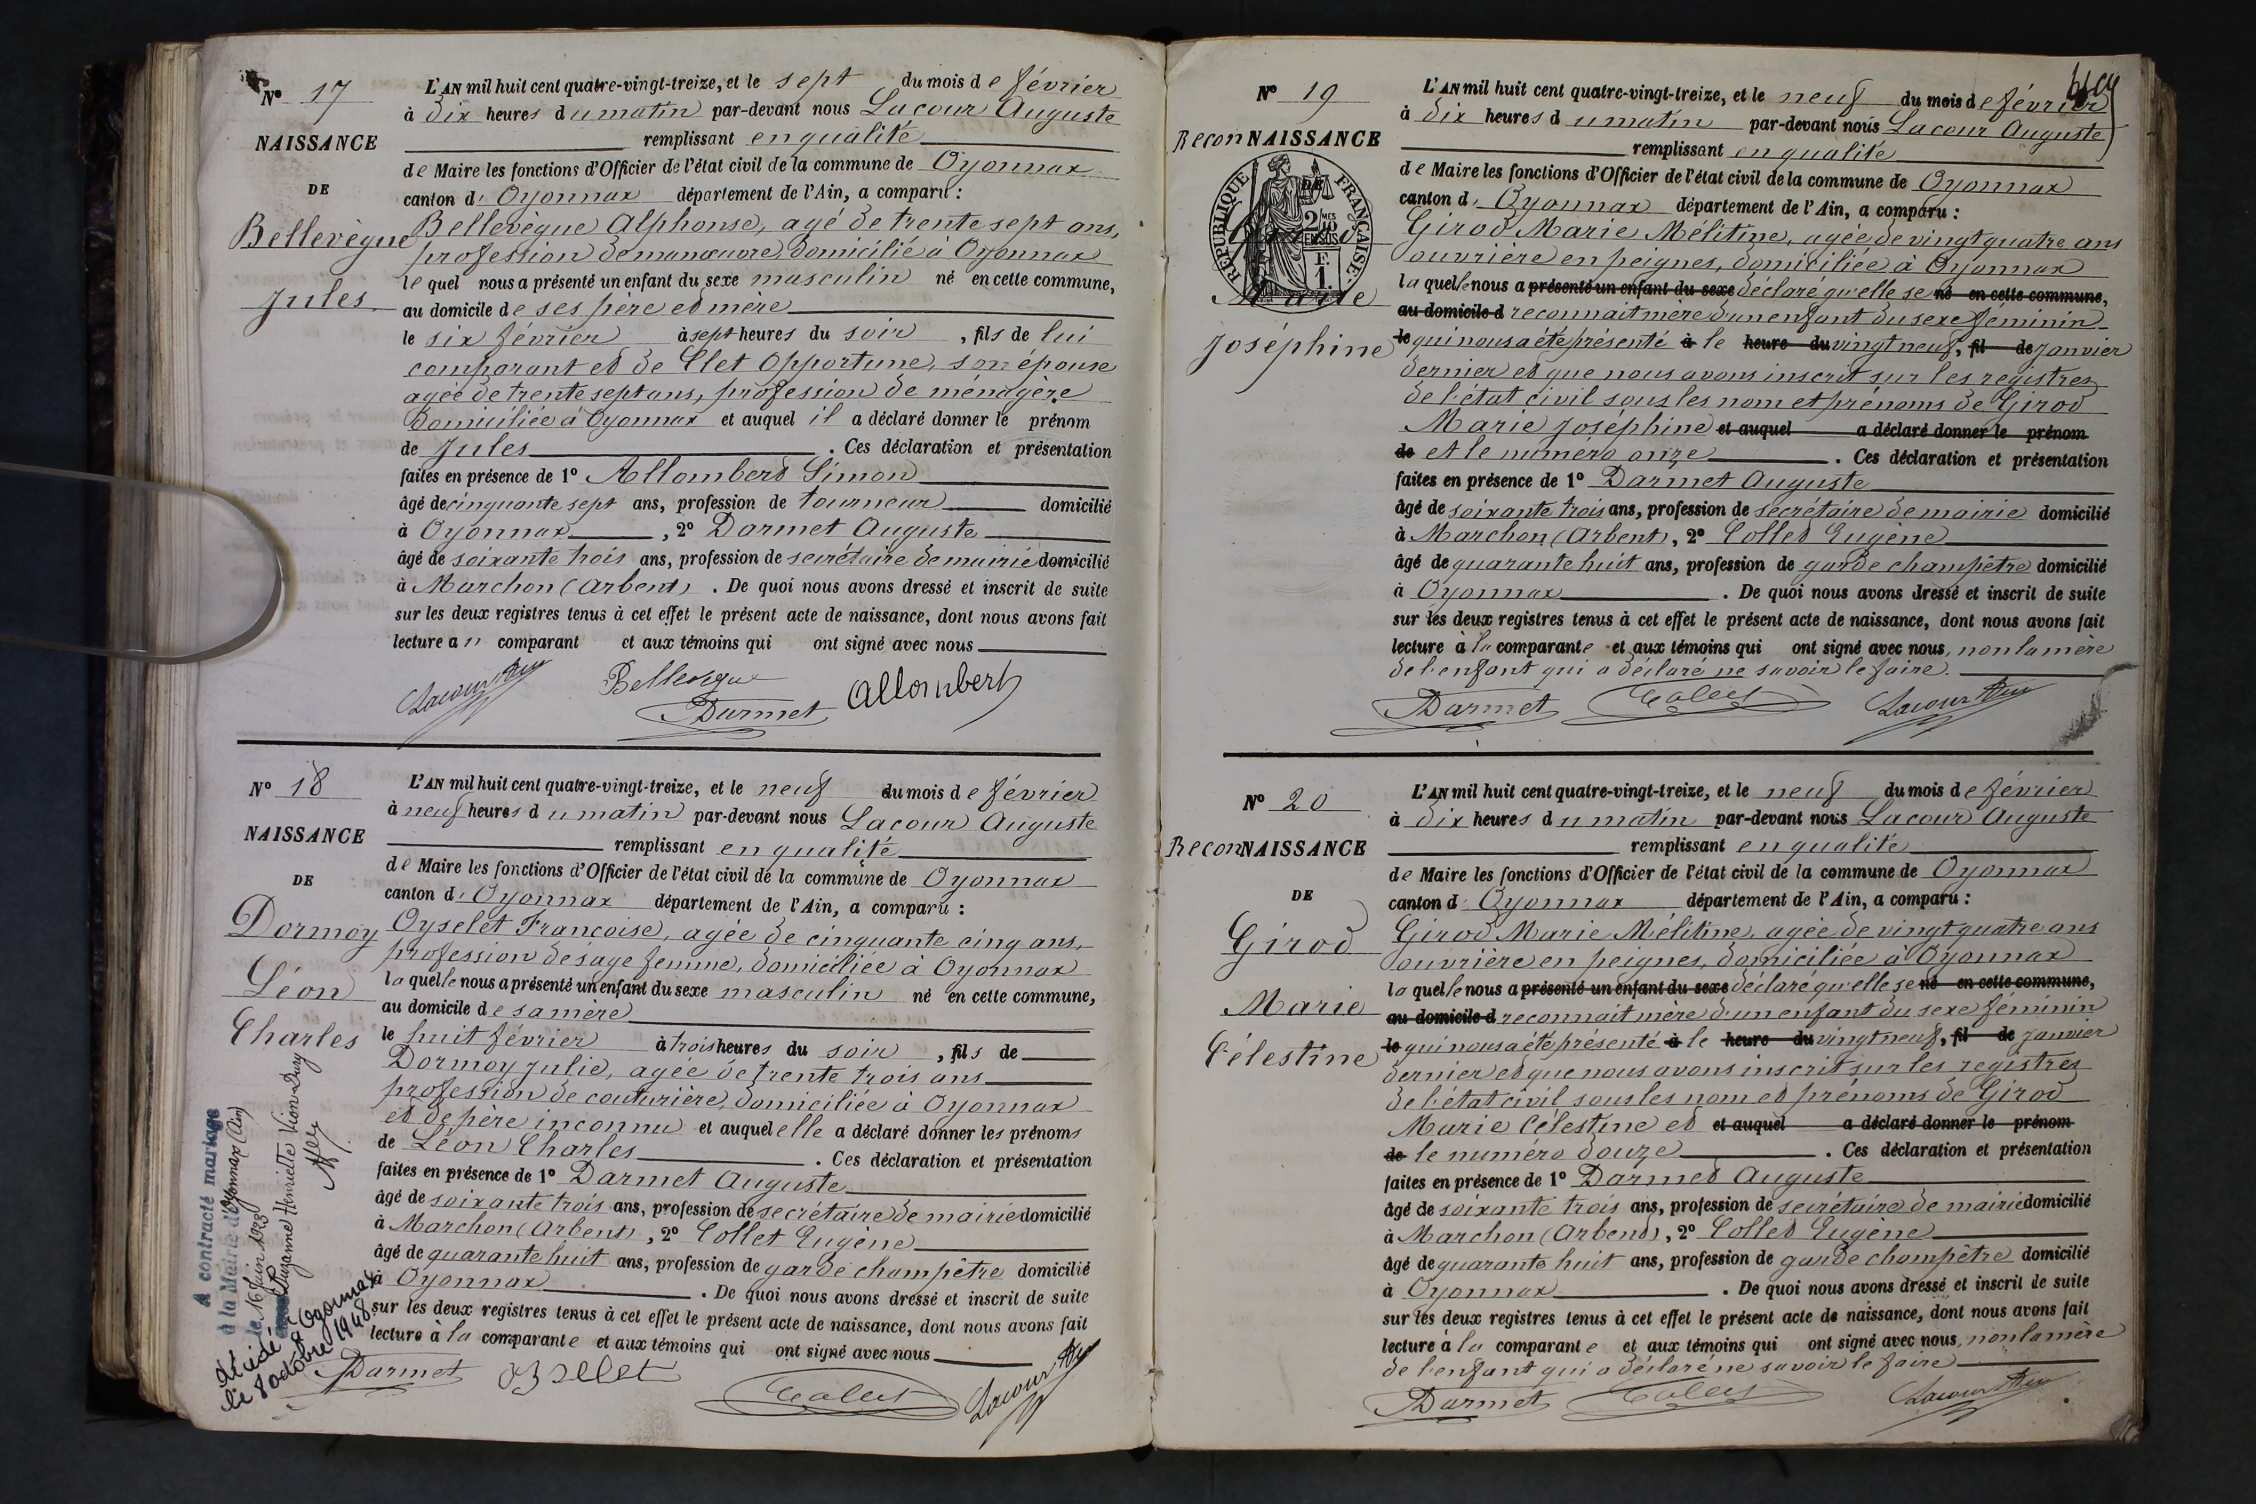 Nº 17
NAISSANCE
DE
Bellevègue
Jules
L'AN mil huit cent quatre-vingt-treize, et le sept du mois de février
à dix heures du matin par-devant nous Lacour Auguste
remplissant en qualité
de Maire les fonctions d'Officier de l'état civil de la commune de Oyonnax
canton d'Oyonnax département de l'Ain, a comparu :
Bellevègue Alphonse, agé de trente sept ans,
profession de manœuvre, domicilié à Oyonnax
le quel nous a présenté un enfant du sexe masculin né en cette commune,
au domicile de ses père et mère
le six février à sept heures du soir, fils de lui
comparant et de Clet Opportune, son épouse
agée de trente sept ans, profession de ménagère
domiciliée à Oyonnax et auquel il a déclaré donner le prénom
de Jules. Ces déclaration et présentation
faites en présence de 1º Allomberd Simon
âgé de cinquante sept ans, profession de tourneur domicilié
à Oyonnax, 2º Darmet Auguste
âgé de soixante trois ans, profession de secrétaire de mairie domicilié
à Marchon (Arbent). De quoi nous avons dressé et inscrit de suite
sur les deux registres tenus à cet effet le présent acte de naissance, dont nous avons fait
lecture au comparant et aux témoins qui ont signé avec nous
Lacour Aug Bellevegue
Darmet Allombert
Nº 18
NAISSANCE
DE
Dormoy
Léon
Charles
L'AN mil huit cent quatre-vingt-treize, et le neuf du mois de février
à neuf heures du matin par-devant nous Lacour Auguste
remplissant en qualité
de Maire les fonctions d'Officier de l'état civil de la commune de Oyonnax
canton d'Oyonnax département de l'Ain, a comparu :
Oyselet Françoise, agée de cinquante cinq ans,
profession de sage femme, domiciliée à Oyonnax
la quelle nous a présenté un enfant du sexe masculin né en cette commune,
au domicile de sa mère
le huit février à trois heures du soir, fils de
Dormoy Julie, agée de trente trois ans
profession de couturière, domiciliée à Oyonnax
et de père inconnu et auquel elle a déclaré donner les prénoms
de Léon Charles. Ces déclaration et présentation
faites en présence de 1º Darmet Auguste
âgé de soixante trois ans, profession de secrétaire de mairie domicilié
à Marchon (Arbent), 2º Collet Eugène
âgé de quarante huit ans, profession de garde champêtre domicilié
à Oyonnax. De quoi nous avons dressé et inscrit de suite
sur les deux registres tenus à cet effet le présent acte de naissance, dont nous avons fait
lecture à la comparante et aux témoins qui ont signé avec nous
Darmet Oyselet Collet Lacour Aug
A contracté mariage
à la Mairie d'Oyonnax (Ain)
le 16 Juin 1923
avec Suzanne Henriette
décédé à Oyonnax
le 8 octobre 1948
Nº 19
ReconNAISSANCE
DE
RÉPUBLIQUE FRANÇAISE
2/10MES
EN SUS
F.
1.
Girod
Marie
Joséphine
L'AN mil huit cent quatre-vingt-treize, et le neuf du mois de février
à dix heures du matin par-devant nous Lacour Auguste
remplissant en qualité
de Maire les fonctions d'Officier de l'état civil de la commune de Oyonnax
canton d'Oyonnax département de l'Ain, a comparu :
Girod Marie Mélitine, agée de vingt quatre ans
ouvrière en peignes, domiciliée à Oyonnax
la quelle nous a présenté un enfant du sexe déclaré qu'elle se né en cette commune,
au domicile d reconnait mère d'un enfant du sexe féminin
le qui nous a été présenté à le heure du vingt neuf, fil de janvier
dernier et que nous avons inscrit sur les registres
de l'état civil sous les nom et prénoms de Girod
Marie Joséphine et auquel a déclaré donner le prénom
de et le numéro onze. Ces déclaration et présentation
faites en présence de 1º Darmet Auguste
âgé de soixante trois ans, profession de secrétaire de mairie domicilié
à Marchon (Arbent), 2º Collet Eugène
âgé de quarante huit ans, profession de garde champêtre domicilié
à Oyonnax. De quoi nous avons dressé et inscrit de suite
sur les deux registres tenus à cet effet le présent acte de naissance, dont nous avons fait
lecture à la comparante et aux témoins qui ont signé avec nous, non la mère
de l'enfant qui a déclaré ne savoir le faire.
Darmet Collet Lacour Aug
Nº 20
ReconNAISSANCE
DE
Girod
Marie
Célestine
L'AN mil huit cent quatre-vingt-treize, et le neuf du mois de février
à dix heures du matin par-devant nous Lacour Auguste
remplissant en qualité
de Maire les fonctions d'Officier de l'état civil de la commune de Oyonnax
canton d'Oyonnax département de l'Ain, a comparu :
Girod Marie Mélitine, agée de vingt quatre ans
ouvrière en peignes, domiciliée à Oyonnax
la quelle nous a présenté un enfant du sexe déclaré qu'elle se né en cette commune,
au domicile d reconnait mère d'un enfant du sexe féminin
le qui nous a été présenté à le heure du vingt neuf, fil de janvier
dernier et que nous avons inscrit sur les registres
de l'état civil sous les nom et prénoms de Girod
Marie Célestine et et auquel a déclaré donner le prénom
de le numéro douze. Ces déclaration et présentation
faites en présence de 1º Darmet Auguste
âgé de soixante trois ans, profession de secrétaire de mairie domicilié
à Marchon (Arbent), 2º Collet Eugène
âgé de quarante huit ans, profession de garde champêtre domicilié
à Oyonnax. De quoi nous avons dressé et inscrit de suite
sur les deux registres tenus à cet effet le présent acte de naissance, dont nous avons fait
lecture à la comparante et aux témoins qui ont signé avec nous, non la mère
de l'enfant qui a déclaré ne savoir le faire
Darmet Collet Lacour Aug